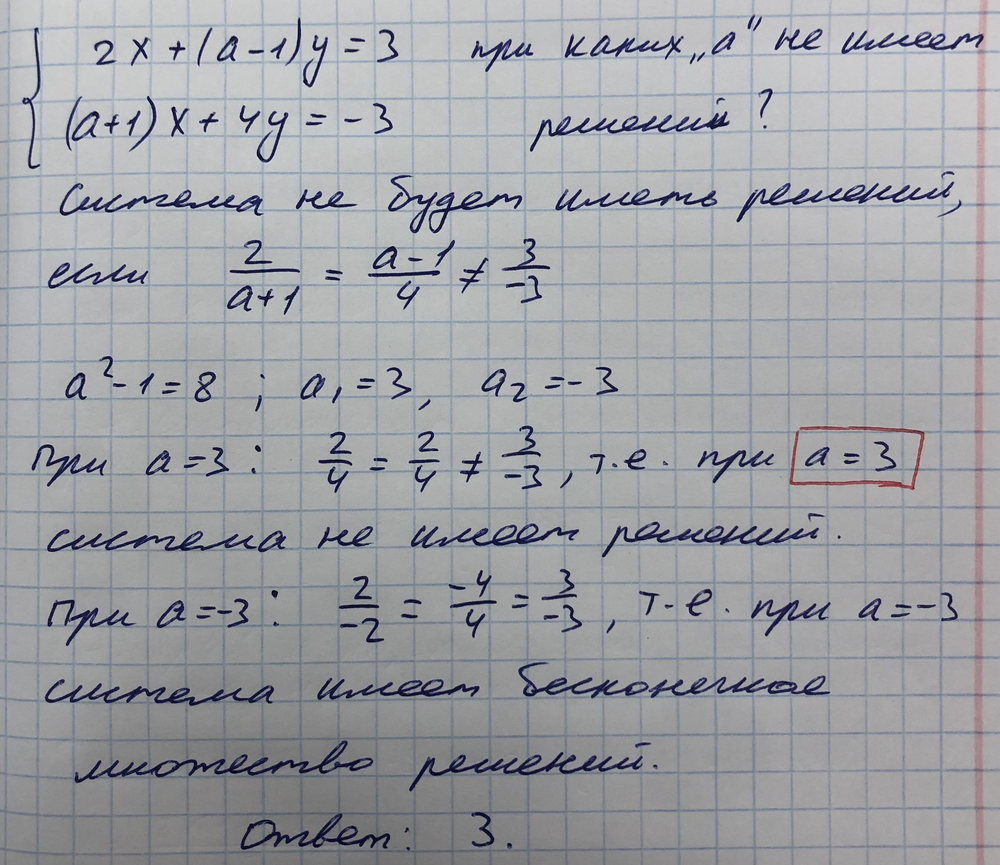 2x + (a-1)y = 3 при каких „a" не имеет
(a+1)x + 4y = -3 решений?
Система не будет иметь решений,
если 2/(a+1) = (a-1)/4 ≠ 3/-3
a² - 1 = 8 ; a₁ = 3, a₂ = -3
При a = 3 : 2/4 = 2/4 ≠ 3/-3, т.е. при a = 3
система не имеет решений.
При a = -3 : 2/-2 = -4/4 = 3/-3, т.е. при a = -3
система имеет бесконечное
множество решений.
Ответ: 3.